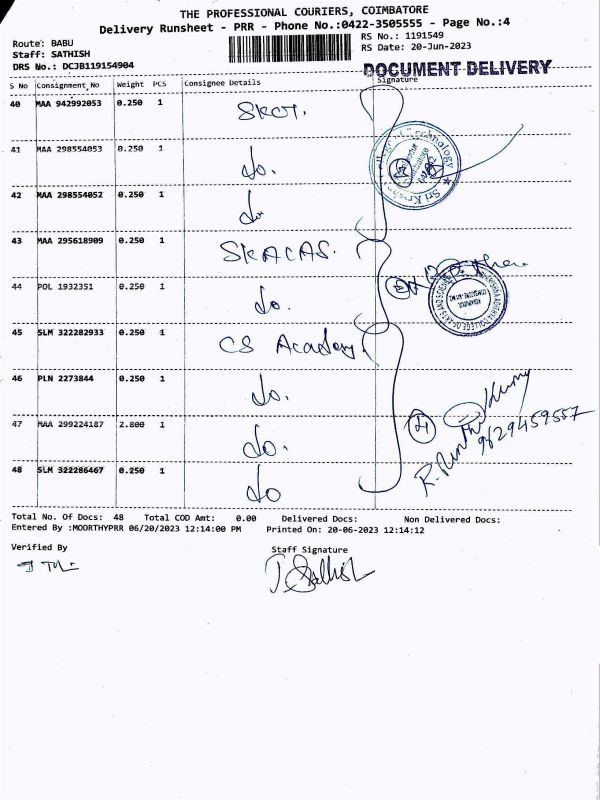 THE PROFESSIONAL COURIERS, COIMBATORE
Delivery Runsheet - PRR - Phone No.:0422-3505555 - Page No.:4
Route: BABU
RS No.: 1191549
Staff: SATHISH
RS Date: 20-Jun-2023
DRS No.: DCJB119154904
DOCUMENT DELIVERY
S No Consignment_No Weight PCS Consignee Details Signature
40 MAA 942992053 0.250 1 SKCT.
41 MAA 298554053 0.250 1 do.
42 MAA 298554052 0.250 1 do
43 MAA 295618909 0.250 1 SKACAS.
44 POL 1932351 0.250 1 do.
45 SLM 322282933 0.250 1 CS Academy
46 PLN 2273844 0.250 1 do.
47 MAA 299224187 2.800 1 do.
48 SLM 322286467 0.250 1 do
Technology ★ Sri
COLLEGE OF ARTS AND
9629459557
Total No. Of Docs: 48 Total COD Amt: 0.00 Delivered Docs: Non Delivered Docs:
Entered By :MOORTHYPRR 06/20/2023 12:14:00 PM Printed On: 20-06-2023 12:14:12
Verified By
Staff Signature